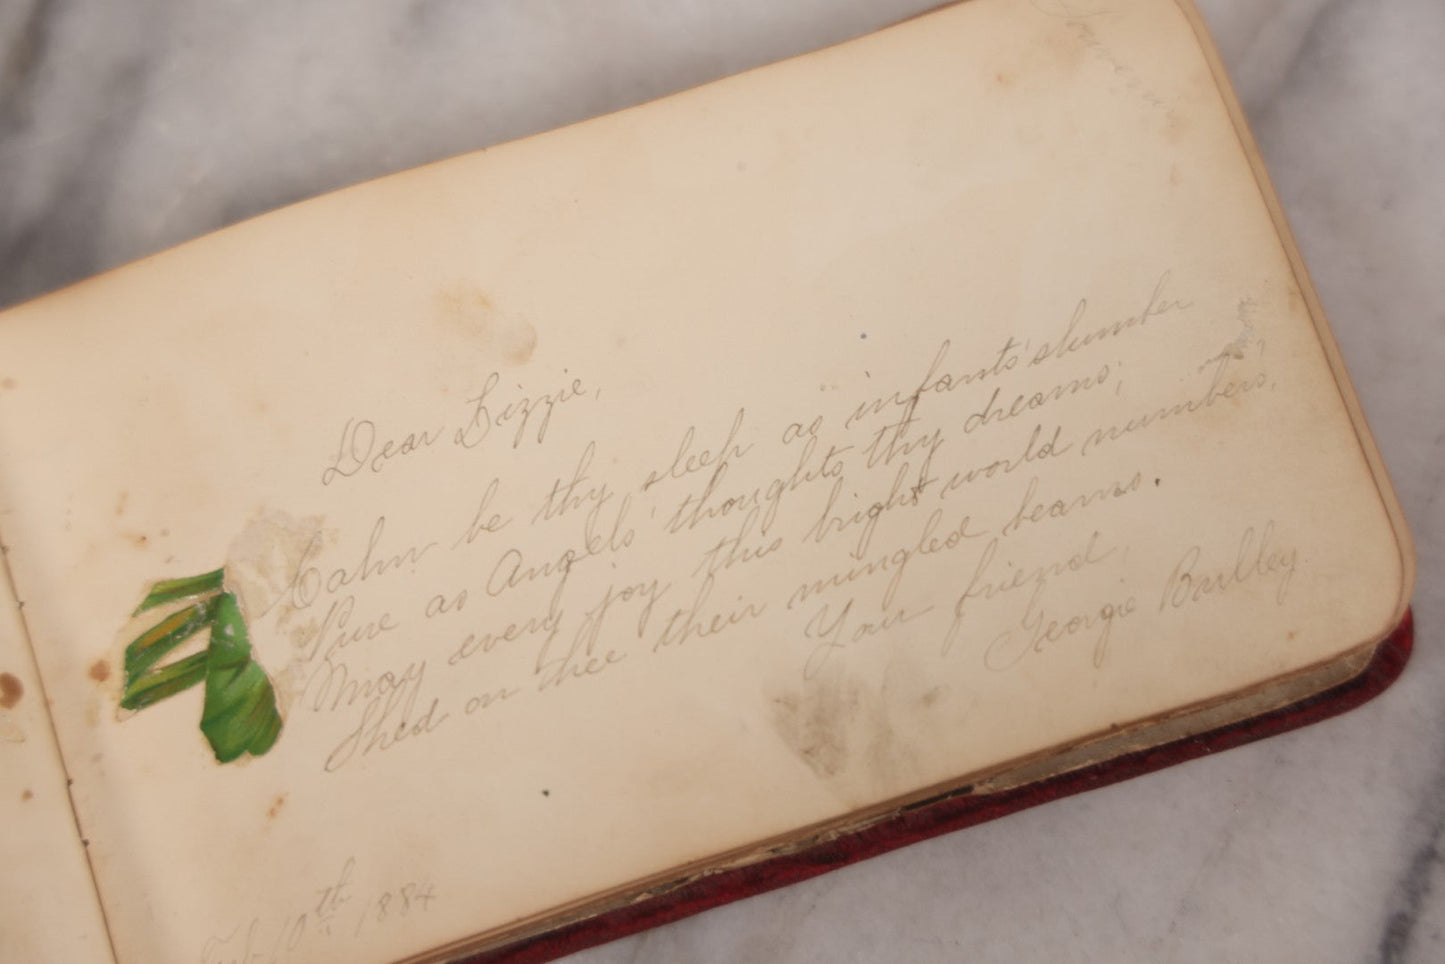 Dear Lizzie,
Calm be thy sleep as infants' slumber
Pure as Angels' thoughts thy dreams;
May every joy this bright world numbers,
Shed on thee their mingled beams.
Your friend,
Georgie
Feb 10th 1884